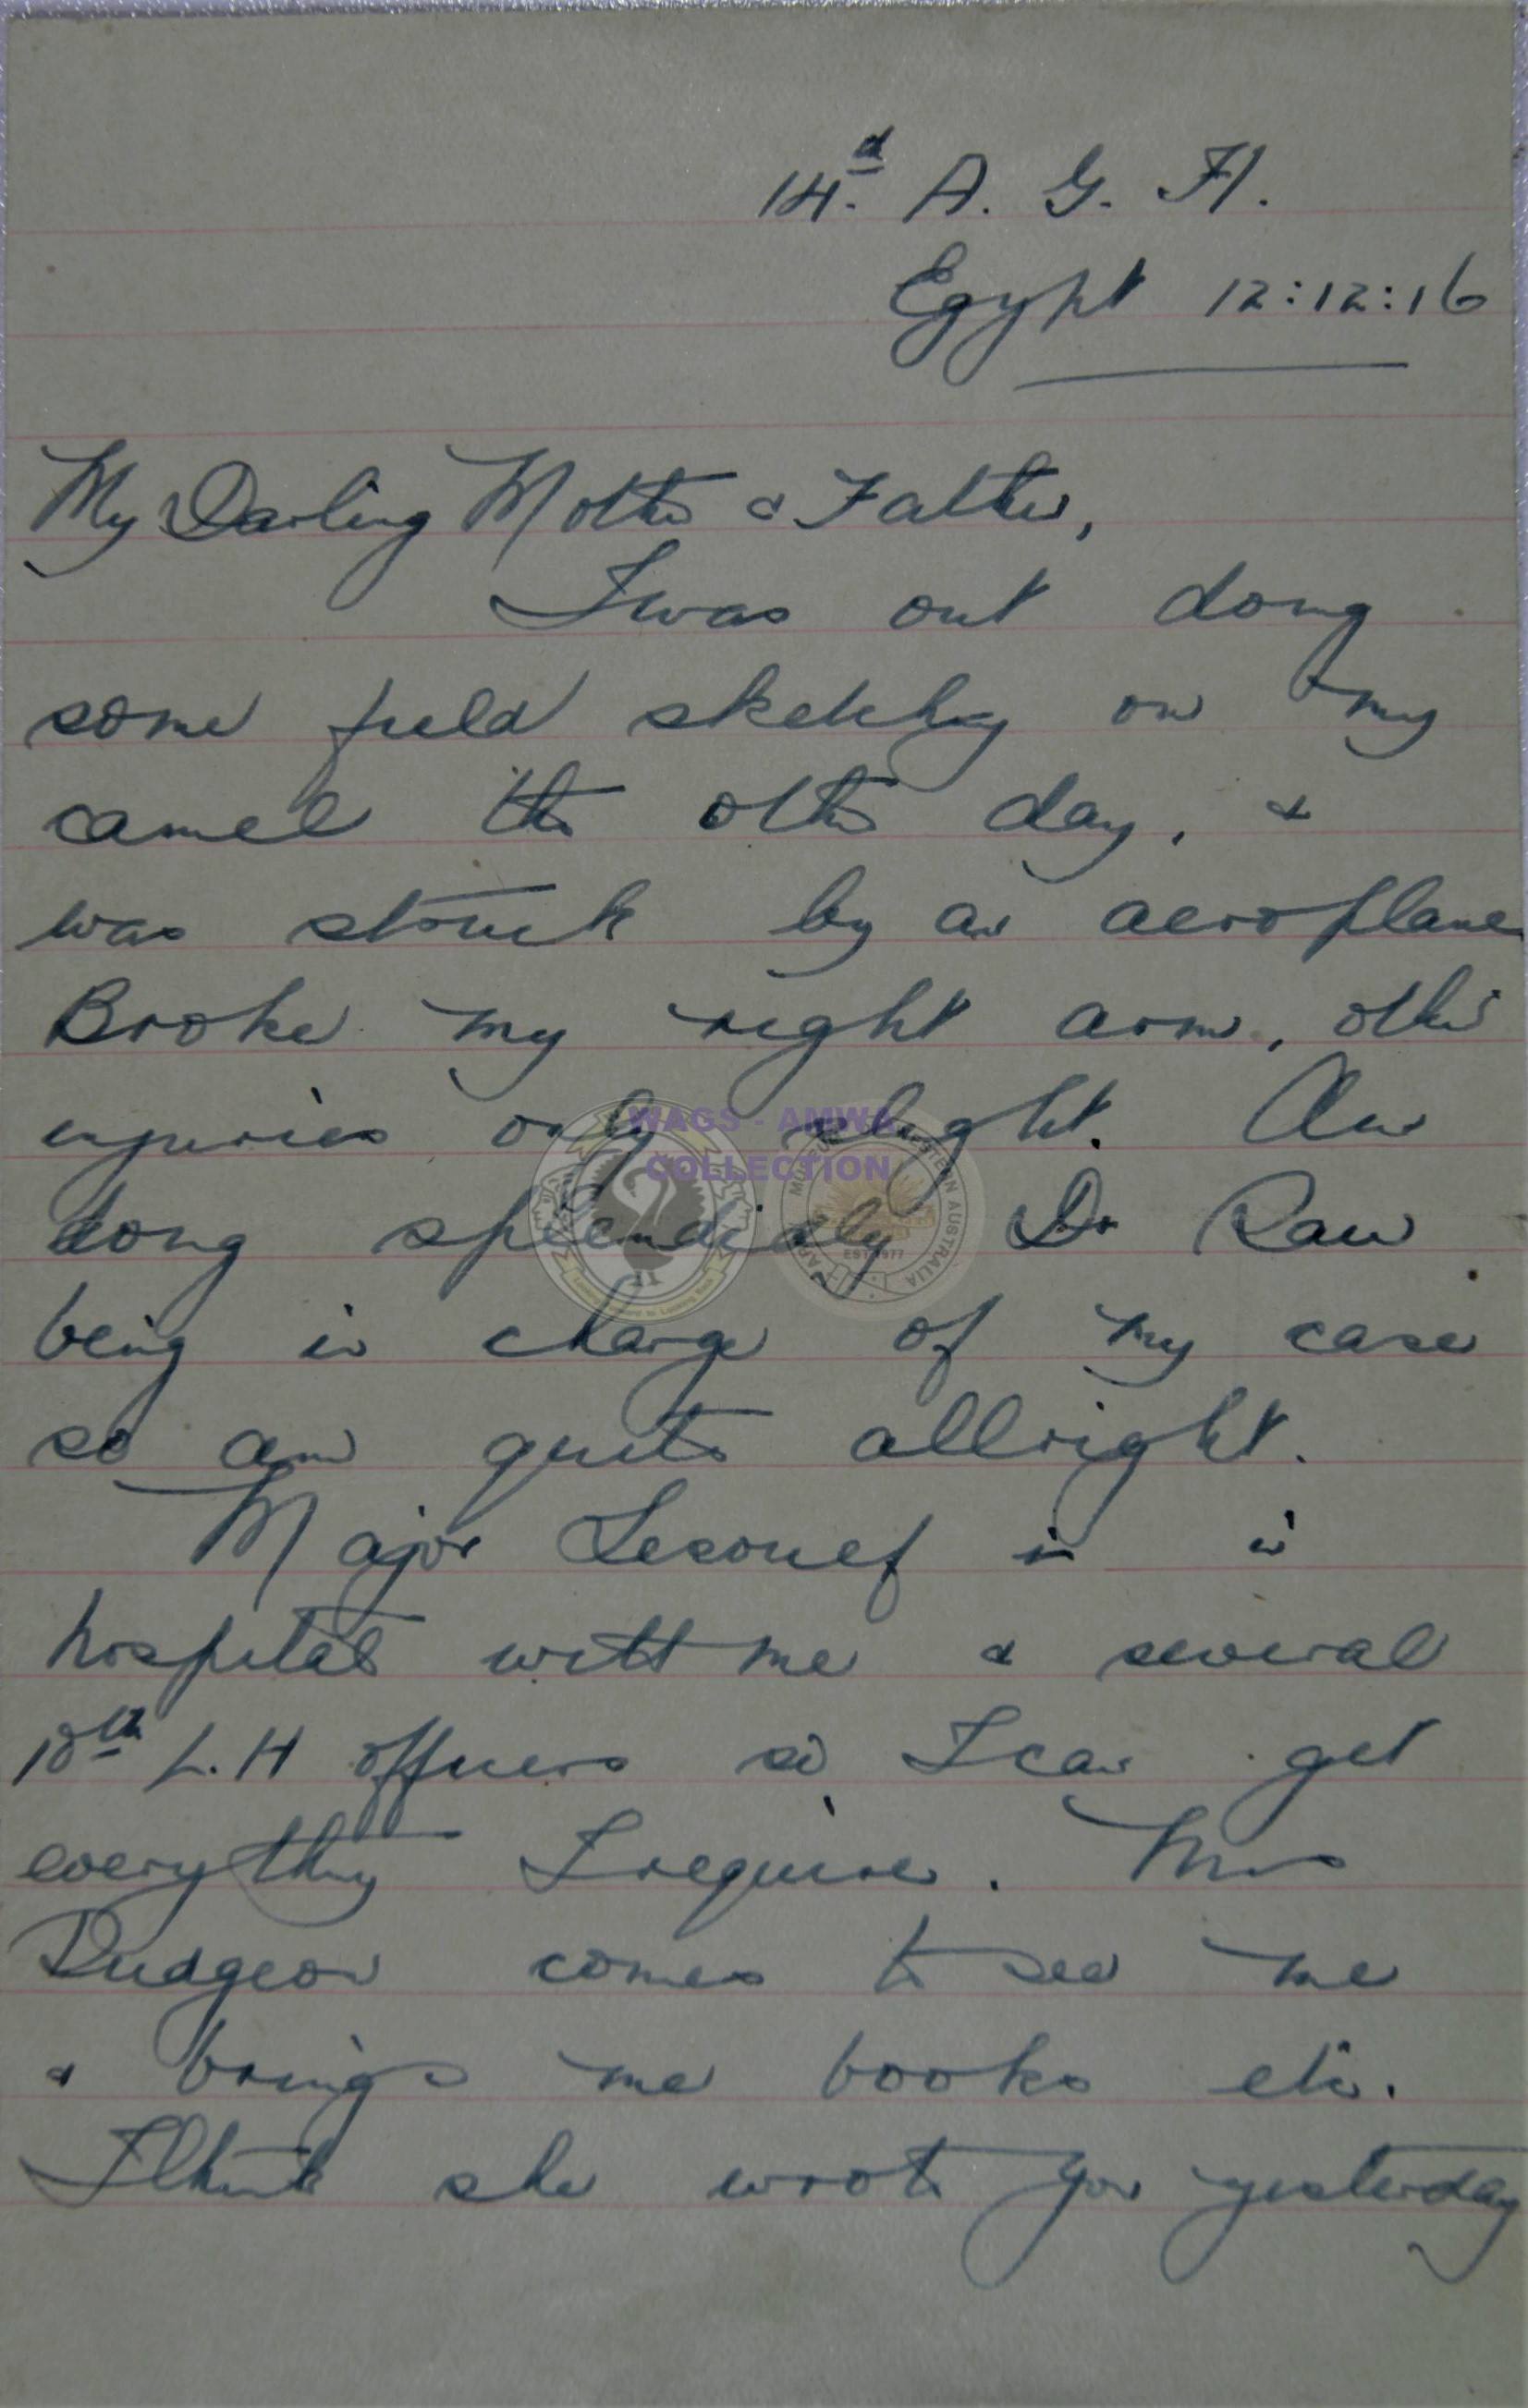 14.d A. G. H.
Egypt 12:12:16
My Darling Mother & Father,
I was out doing
some field sketching on my
camel the other day, &
was struck by an aeroplane
Broke my right arm, other
injuries only slight. Am
doing splendidly Dr Raw
being in charge of my case
so am quite allright.
Major Lesouef is in
hospital with me & several
10th L.H officers so I can get
everything I require. Mrs
Dudgeon comes to see me
& brings me books etc.
I think she wrote you yesterday
WAGS - AMWA
COLLECTION
EST 1977